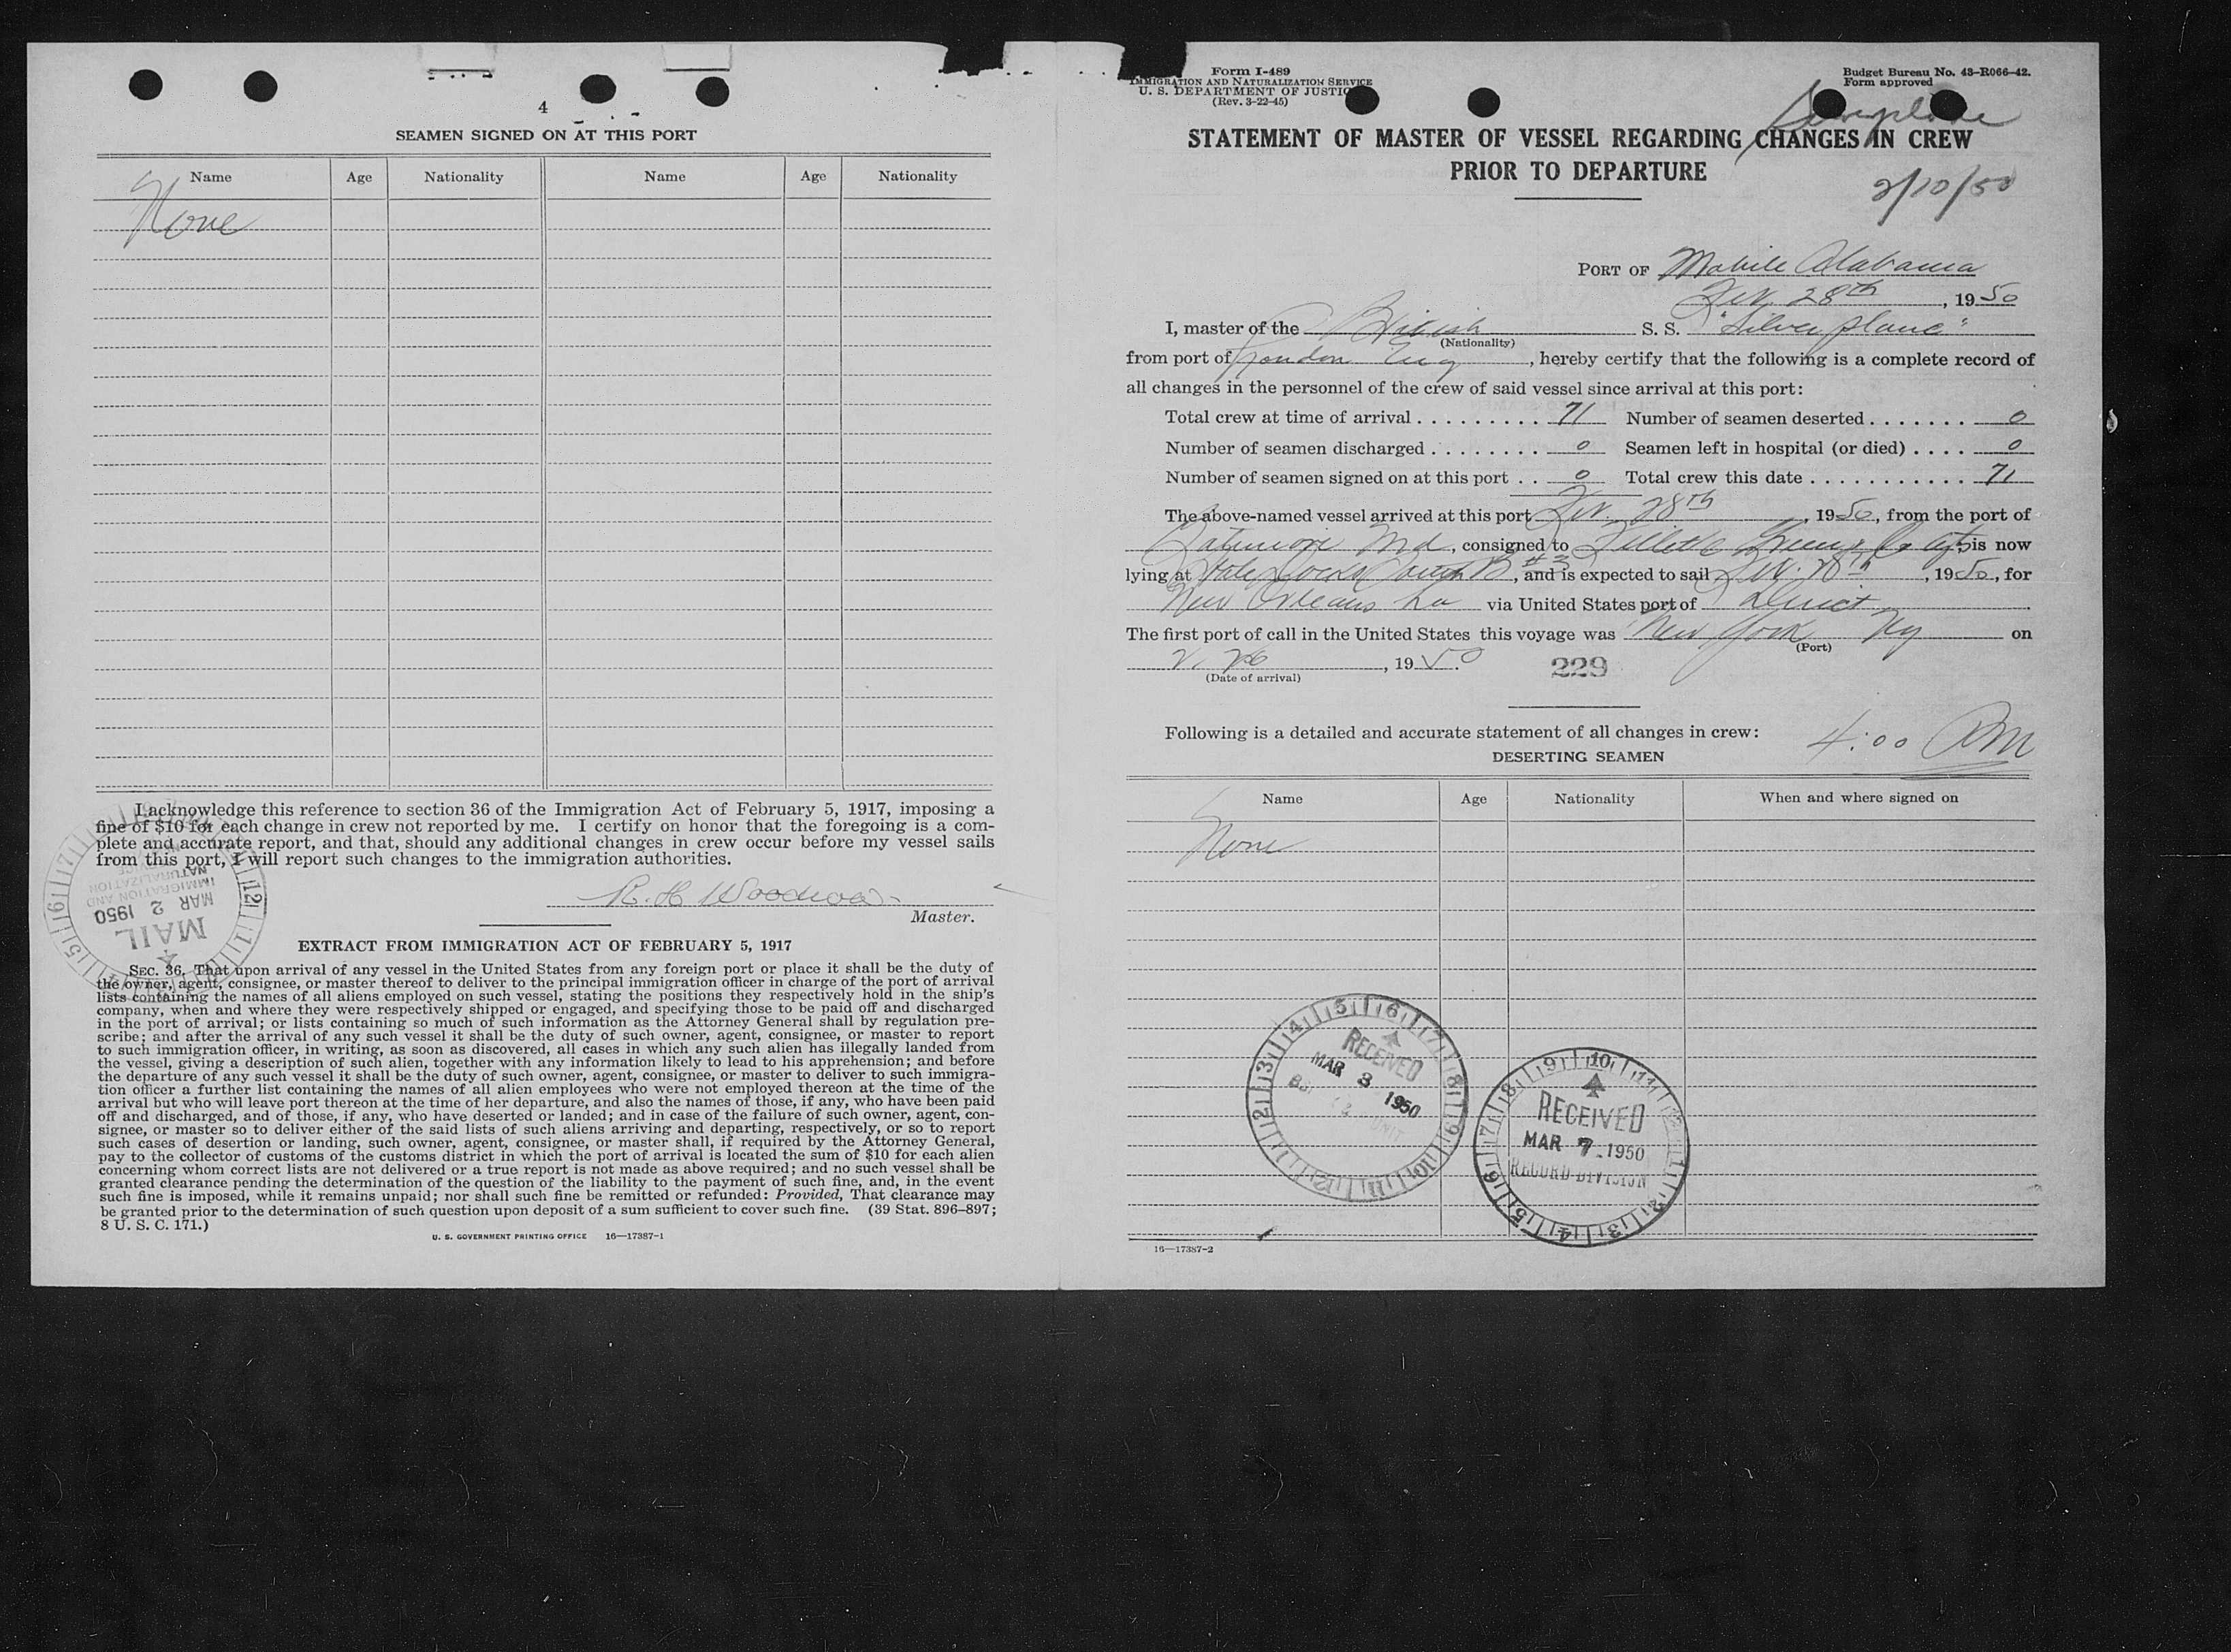 4
SEAMEN SIGNED ON AT THIS PORT
Name Age Nationality Name Age Nationality
None
I acknowledge this reference to section 36 of the Immigration Act of February 5, 1917, imposing a
fine of $10 for each change in crew not reported by me. I certify on honor that the foregoing is a com-
plete and accurate report, and that, should any additional changes in crew occur before my vessel sails
from this port, I will report such changes to the immigration authorities.
R. H. Woodrow
Master.
MAIL
MAR 2 1950
IMMIGRATION AND
NATURALIZATION
EXTRACT FROM IMMIGRATION ACT OF FEBRUARY 5, 1917
SEC. 36. That upon arrival of any vessel in the United States from any foreign port or place it shall be the duty of
the owner, agent, consignee, or master thereof to deliver to the principal immigration officer in charge of the port of arrival
lists containing the names of all aliens employed on such vessel, stating the positions they respectively hold in the ship's
company, when and where they were respectively shipped or engaged, and specifying those to be paid off and discharged
in the port of arrival; or lists containing so much of such information as the Attorney General shall by regulation pre-
scribe; and after the arrival of any such vessel it shall be the duty of such owner, agent, consignee, or master to report
to such immigration officer, in writing, as soon as discovered, all cases in which any such alien has illegally landed from
the vessel, giving a description of such alien, together with any information likely to lead to his apprehension; and before
the departure of any such vessel it shall be the duty of such owner, agent, consignee, or master to deliver to such immigra-
tion officer a further list containing the names of all alien employees who were not employed thereon at the time of the
arrival but who will leave port thereon at the time of her departure, and also the names of those, if any, who have been paid
off and discharged, and of those, if any, who have deserted or landed; and in case of the failure of such owner, agent, con-
signee, or master so to deliver either of the said lists of such aliens arriving and departing, respectively, or so to report
such cases of desertion or landing, such owner, agent, consignee, or master shall, if required by the Attorney General,
pay to the collector of customs of the customs district in which the port of arrival is located the sum of $10 for each alien
concerning whom correct lists are not delivered or a true report is not made as above required; and no such vessel shall be
granted clearance pending the determination of the question of the liability to the payment of such fine, and, in the event
such fine is imposed, while it remains unpaid; nor shall such fine be remitted or refunded: Provided, That clearance may
be granted prior to the determination of such question upon deposit of a sum sufficient to cover such fine. (39 Stat. 896–897;
8 U. S. C. 171.)
U. S. GOVERNMENT PRINTING OFFICE 16—17387-1
Form I-489
IMMIGRATION AND NATURALIZATION SERVICE
U. S. DEPARTMENT OF JUSTICE
(Rev. 3-22-45)
Budget Bureau No. 43–R066–42.
Form approved
Silverplane
STATEMENT OF MASTER OF VESSEL REGARDING CHANGES IN CREW
PRIOR TO DEPARTURE
2/10/50
PORT OF Mobile Alabama
Feb. 28th, 1950
I, master of the British S. S. "Silverplane"
(Nationality)
from port of London Eng, hereby certify that the following is a complete record of
all changes in the personnel of the crew of said vessel since arrival at this port:
Total crew at time of arrival 71 Number of seamen deserted 0
Number of seamen discharged 0 Seamen left in hospital (or died) 0
Number of seamen signed on at this port 0 Total crew this date 71
The above-named vessel arrived at this port Feb. 28th, 1950, from the port of
Baltimore Md, consigned to Fillette Green & Co Agts, is now
lying at State Docks South B #3, and is expected to sail Feb. 28th, 1950, for
New Orleans La via United States port of Direct
The first port of call in the United States this voyage was New York Ny on
(Port)
, 1950.
(Date of arrival)
229
Following is a detailed and accurate statement of all changes in crew: 4:00 PM
DESERTING SEAMEN
Name Age Nationality When and where signed on
None
RECEIVED
MAR 3 1950
UNIT
RECEIVED
MAR 7 1950
RECORD DIVISION
16—17387-2